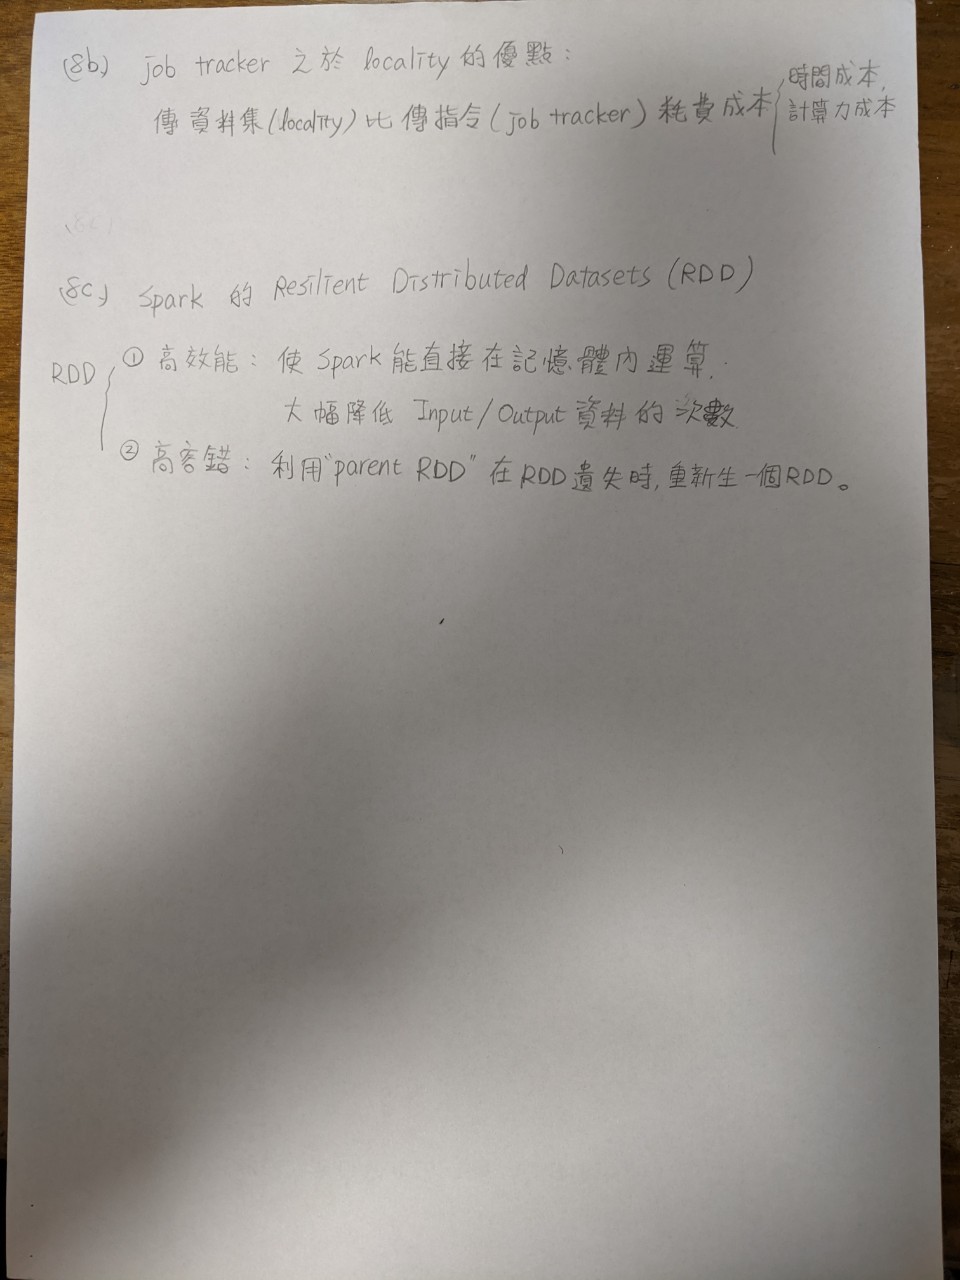 (8b) job tracker 之於 locality 的優點：
傳資料集(locality)比傳指令(job tracker)耗費成本
時間成本,
計算力成本
(8c) Spark 的 Resilient Distributed Datasets (RDD)
RDD ① 高效能：使 Spark 能直接在記憶體內運算.
大幅降低 Input/Output 資料的次數
② 高容錯：利用"parent RDD"在RDD遺失時,重新生一個RDD。